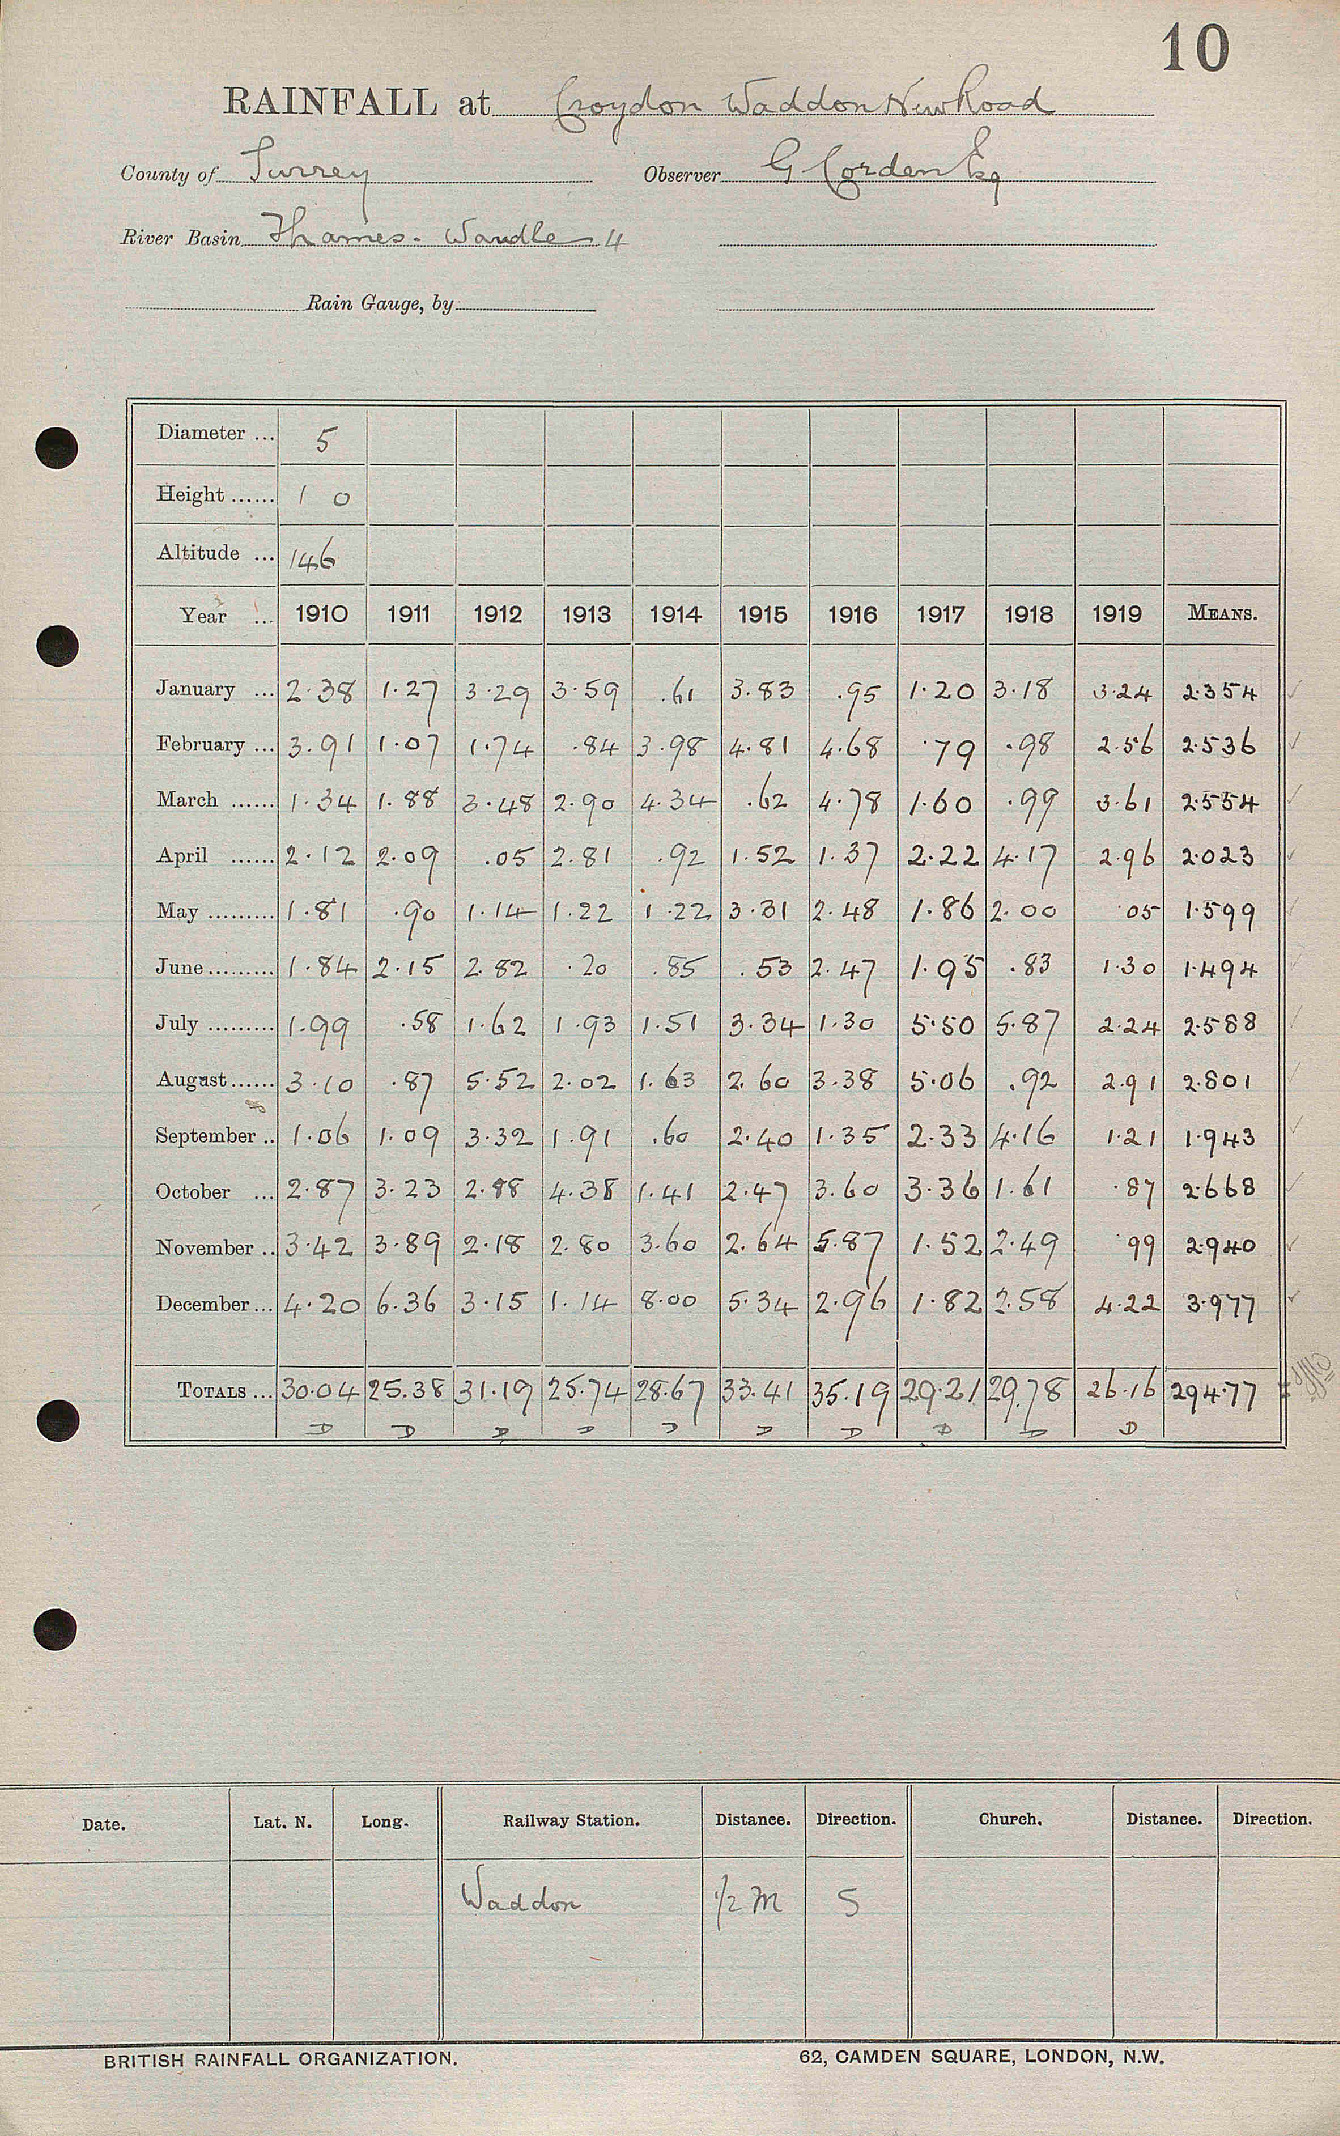 10
RAINFALL at Croydon Waddon New Road
County of Surrey Observer G Corden Esq
River Basin Thames. Wandle 4
Rain Gauge, by
Diameter ... 5
Height ...... 1 0
Altitude ... 146
Year ... 1910 1911 1912 1913 1914 1915 1916 1917 1918 1919 MEANS.
January ... 2.38 1.27 3.29 3.59 .61 3.83 .95 1.20 3.18 3.24 2.354
February ... 3.91 1.07 1.74 .84 3.98 4.81 4.68 .79 .98 2.56 2.536
March ...... 1.34 1.88 3.48 2.90 4.34 .62 4.78 1.60 .99 3.61 2.554
April ...... 2.12 2.09 .05 2.81 .92 1.52 1.37 2.22 4.17 2.96 2.023
May ......... 1.81 .90 1.14 1.22 1.22 3.31 2.48 1.86 2.00 05 1.599
June ......... 1.84 2.15 2.82 .20 .85 .53 2.47 1.95 .83 1.30 1.494
July ......... 1.99 .58 1.62 1.93 1.51 3.34 1.30 5.50 5.87 2.24 2.588
August ...... 3.10 .87 5.52 2.02 1.63 2.60 3.38 5.06 .92 2.91 2.801
September .. 1.06 1.09 3.32 1.91 .60 2.40 1.35 2.33 4.16 1.21 1.943
October ... 2.87 3.23 2.88 4.38 1.41 2.47 3.60 3.36 1.61 .87 2.668
November .. 3.42 3.89 2.18 2.80 3.60 2.64 5.87 1.52 2.49 .99 2.940
December ... 4.20 6.36 3.15 1.14 8.00 5.34 2.96 1.82 2.58 4.22 3.977
TOTALS ... 30.04 25.38 31.19 25.74 28.67 33.41 35.19 29.21 29.78 26.16 294.77
D D D D D D D D D D
Date. Lat. N. Long. Railway Station. Distance. Direction. Church. Distance. Direction.
Waddon 1/2 M S
BRITISH RAINFALL ORGANIZATION. 62, CAMDEN SQUARE, LONDON, N.W.